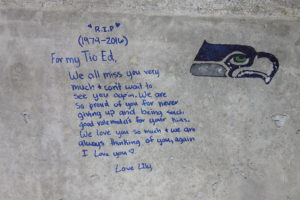 R.I.P
(1979-2016)
For my Tio Ed,
We all miss you very
much & can't wait to
see you again. We are
so proud of you for never
giving up and being such
good role models for your kids.
We love you so much & we are
always thinking of you, again
I love you
Love Lily